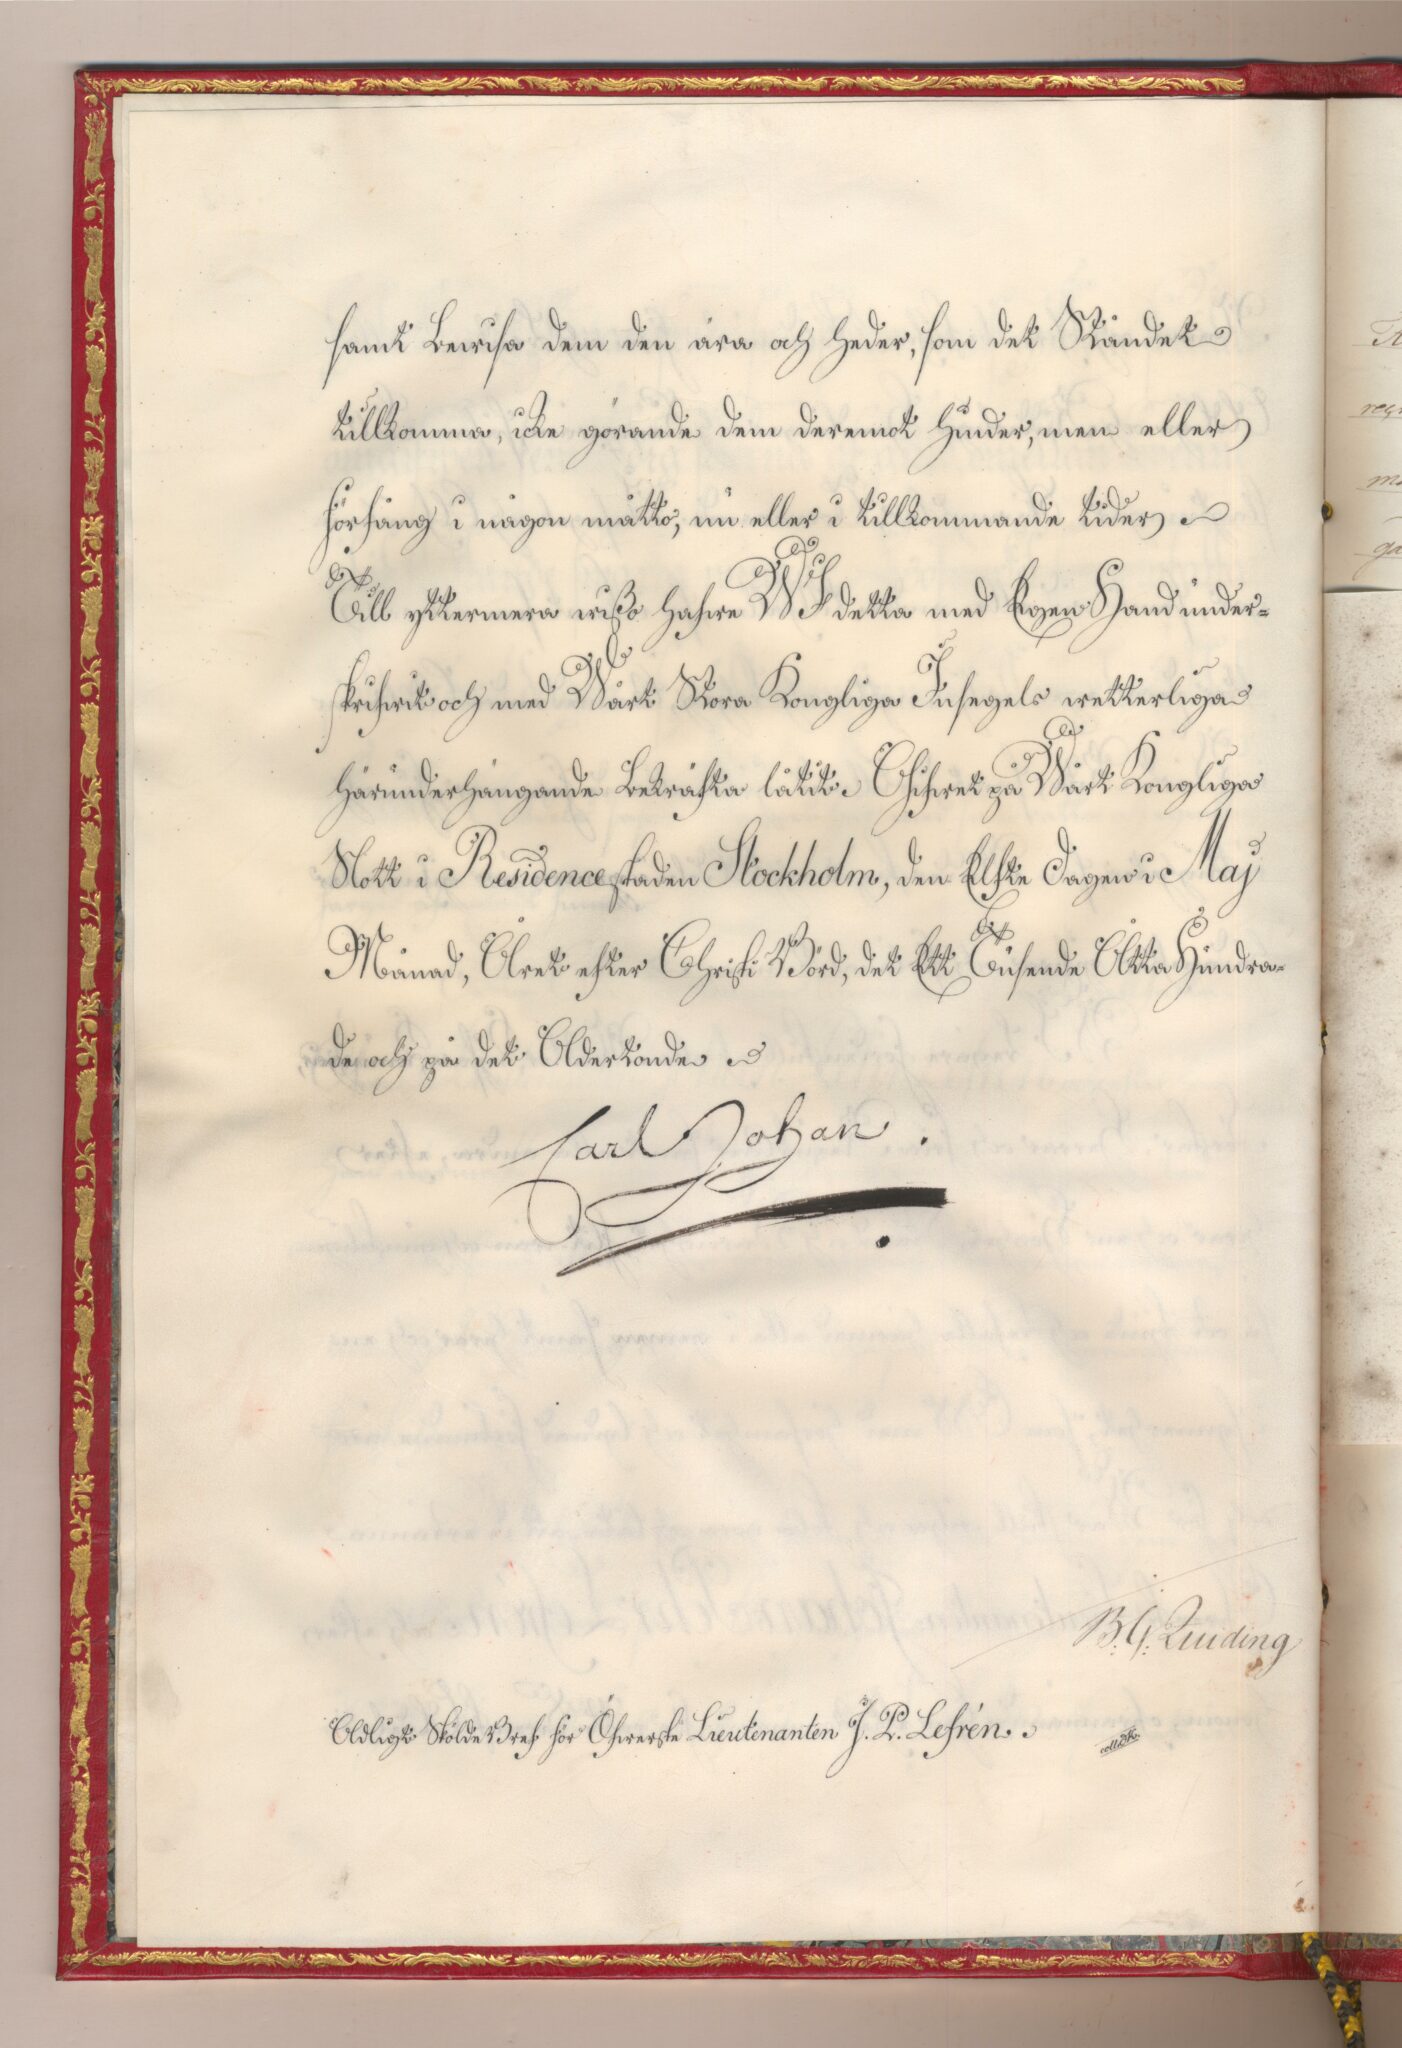 samt bewisa dem den ära och heder, som det Ståndet
tillkomma, icke görande dem deremot hinder, men eller
förfång i någon måtto, nu eller i tillkommande tider
Till yttermera wißo hafwe WJ detta med Egen Hand under-
skrifwit och med Wårt Stora Kongliga Insegels wetterliga
härunderhängande bekräfta låtit. Gifwet på Wårt Kongliga
Slott i Residence staden Stockholm, den Elfte Dagen i Maj
Månad, Året efter Christi Börd, det Ett Tusende Åtta Hundra-
de och på det Adertonde
Carl Johan.
B. G. Quiding
Adligt Skölde Bref för Öfwerste Lieutenanten J. P. Lefrén.